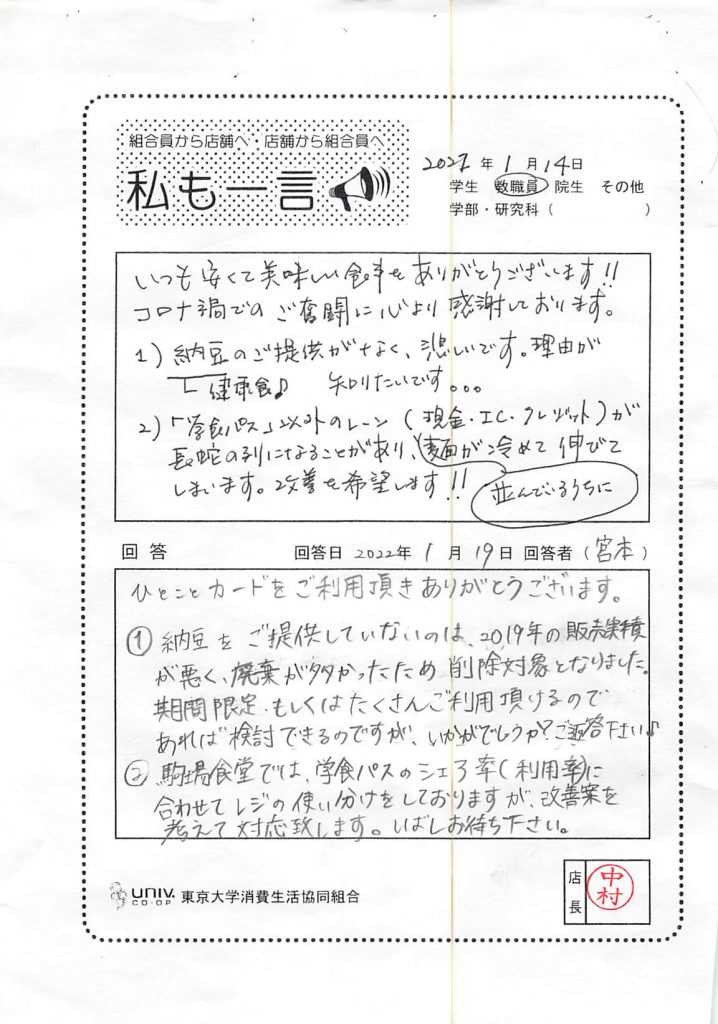 組合員から店舗へ・店舗から組合員へ
私も一言
2022年1月14日
学生 教職員 院生 その他
学部・研究科( )
いつも安くて美味しい食事をありがとうございます!!
コロナ禍でのご奮闘に心より感謝しております。
1) 納豆のご提供がなく、悲しいです。理由が
健康食♪ 知りたいです。。。
2)「学食パス」以外のレーン(現金・IC・クレジット)が
長蛇の列になることがあり、麺が冷めて伸びて
しまいます。改善を希望します!!
並んでいるうちに
回答 回答日 2022年1月19日 回答者(宮本)
ひとことカードをご利用頂きありがとうございます。
① 納豆をご提供していないのは、2019年の販売実積
が悪く、廃棄が多かったため削除対象となりました。
期間限定、もしくはたくさんご利用頂けるので
あれば検討できるのですが、いかがでしょうか?ご返答下さい♪
② 駒場食堂では、学食パスのシェア率(利用率)に
合わせてレジの使い分けをしておりますが、改善案を
考えて対応致します。しばしお待ち下さい。
UNIV. CO-OP 東京大学消費生活協同組合
店長 中村